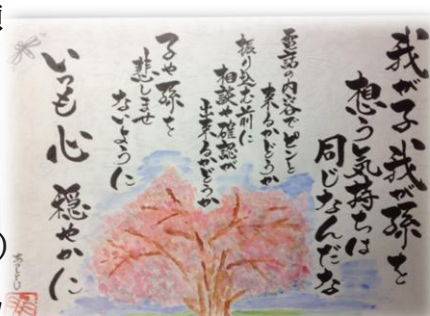 我が子我が孫を
想う気持ちは
同じなんだな
電話の内容でピンと
来るかどうか
振り込む前に
相談や確認が
出来るかどうか
子や孫を
悲しませ
ないように
いつも心 穏やかに